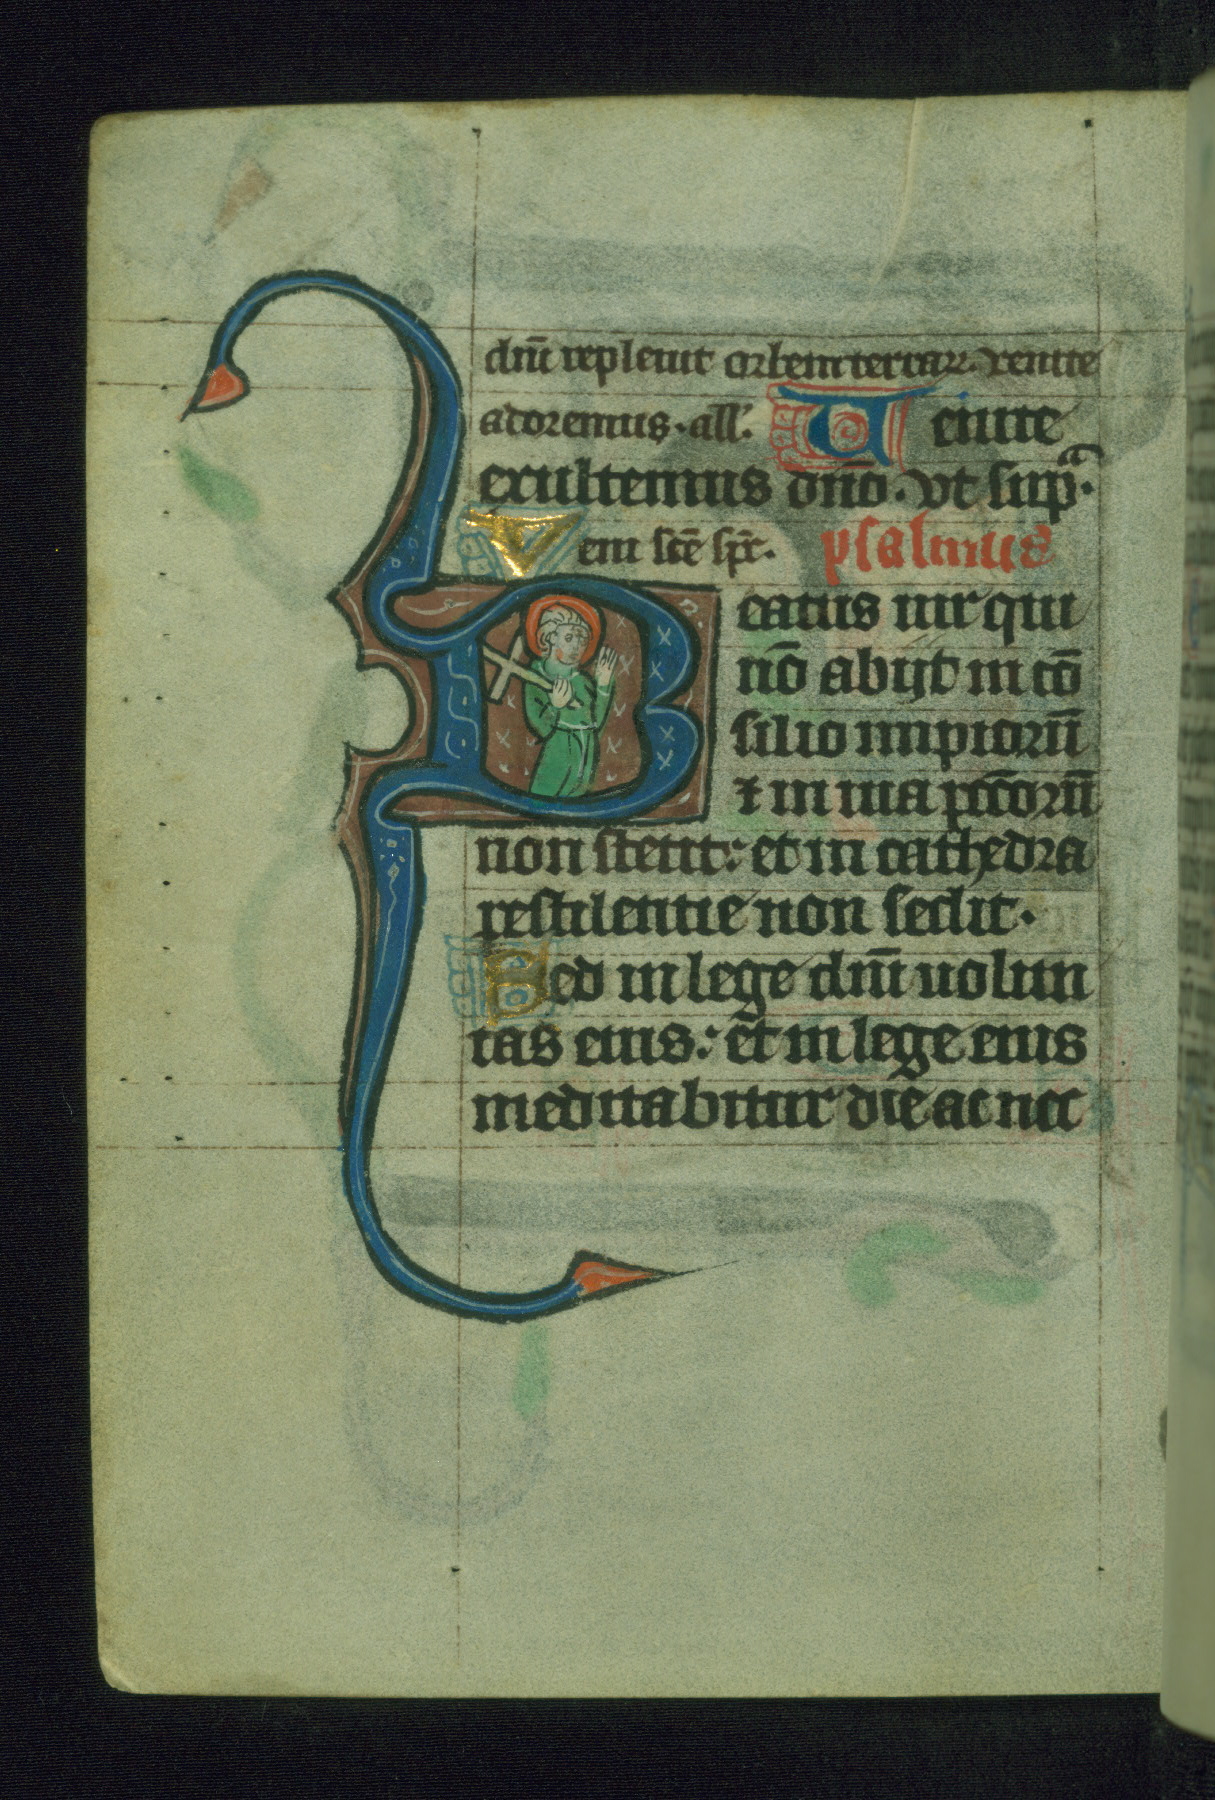 dn̄i repleuit orbem terrar̄. venite
adoremus. all̓. Uenite
exultemus dn̄o. vt sup̄ᵃ.
Veni sc̄e sp̄c. psalmus
Beatus uir qui
nō abijt in cō
silio impiorū
⁊ in uia pccōrū
non stetit: et in cathedra
pestilentie non sedit.
Sed in lege dn̄i uolun
tas eius: et in lege eius
meditabitur die ac noc